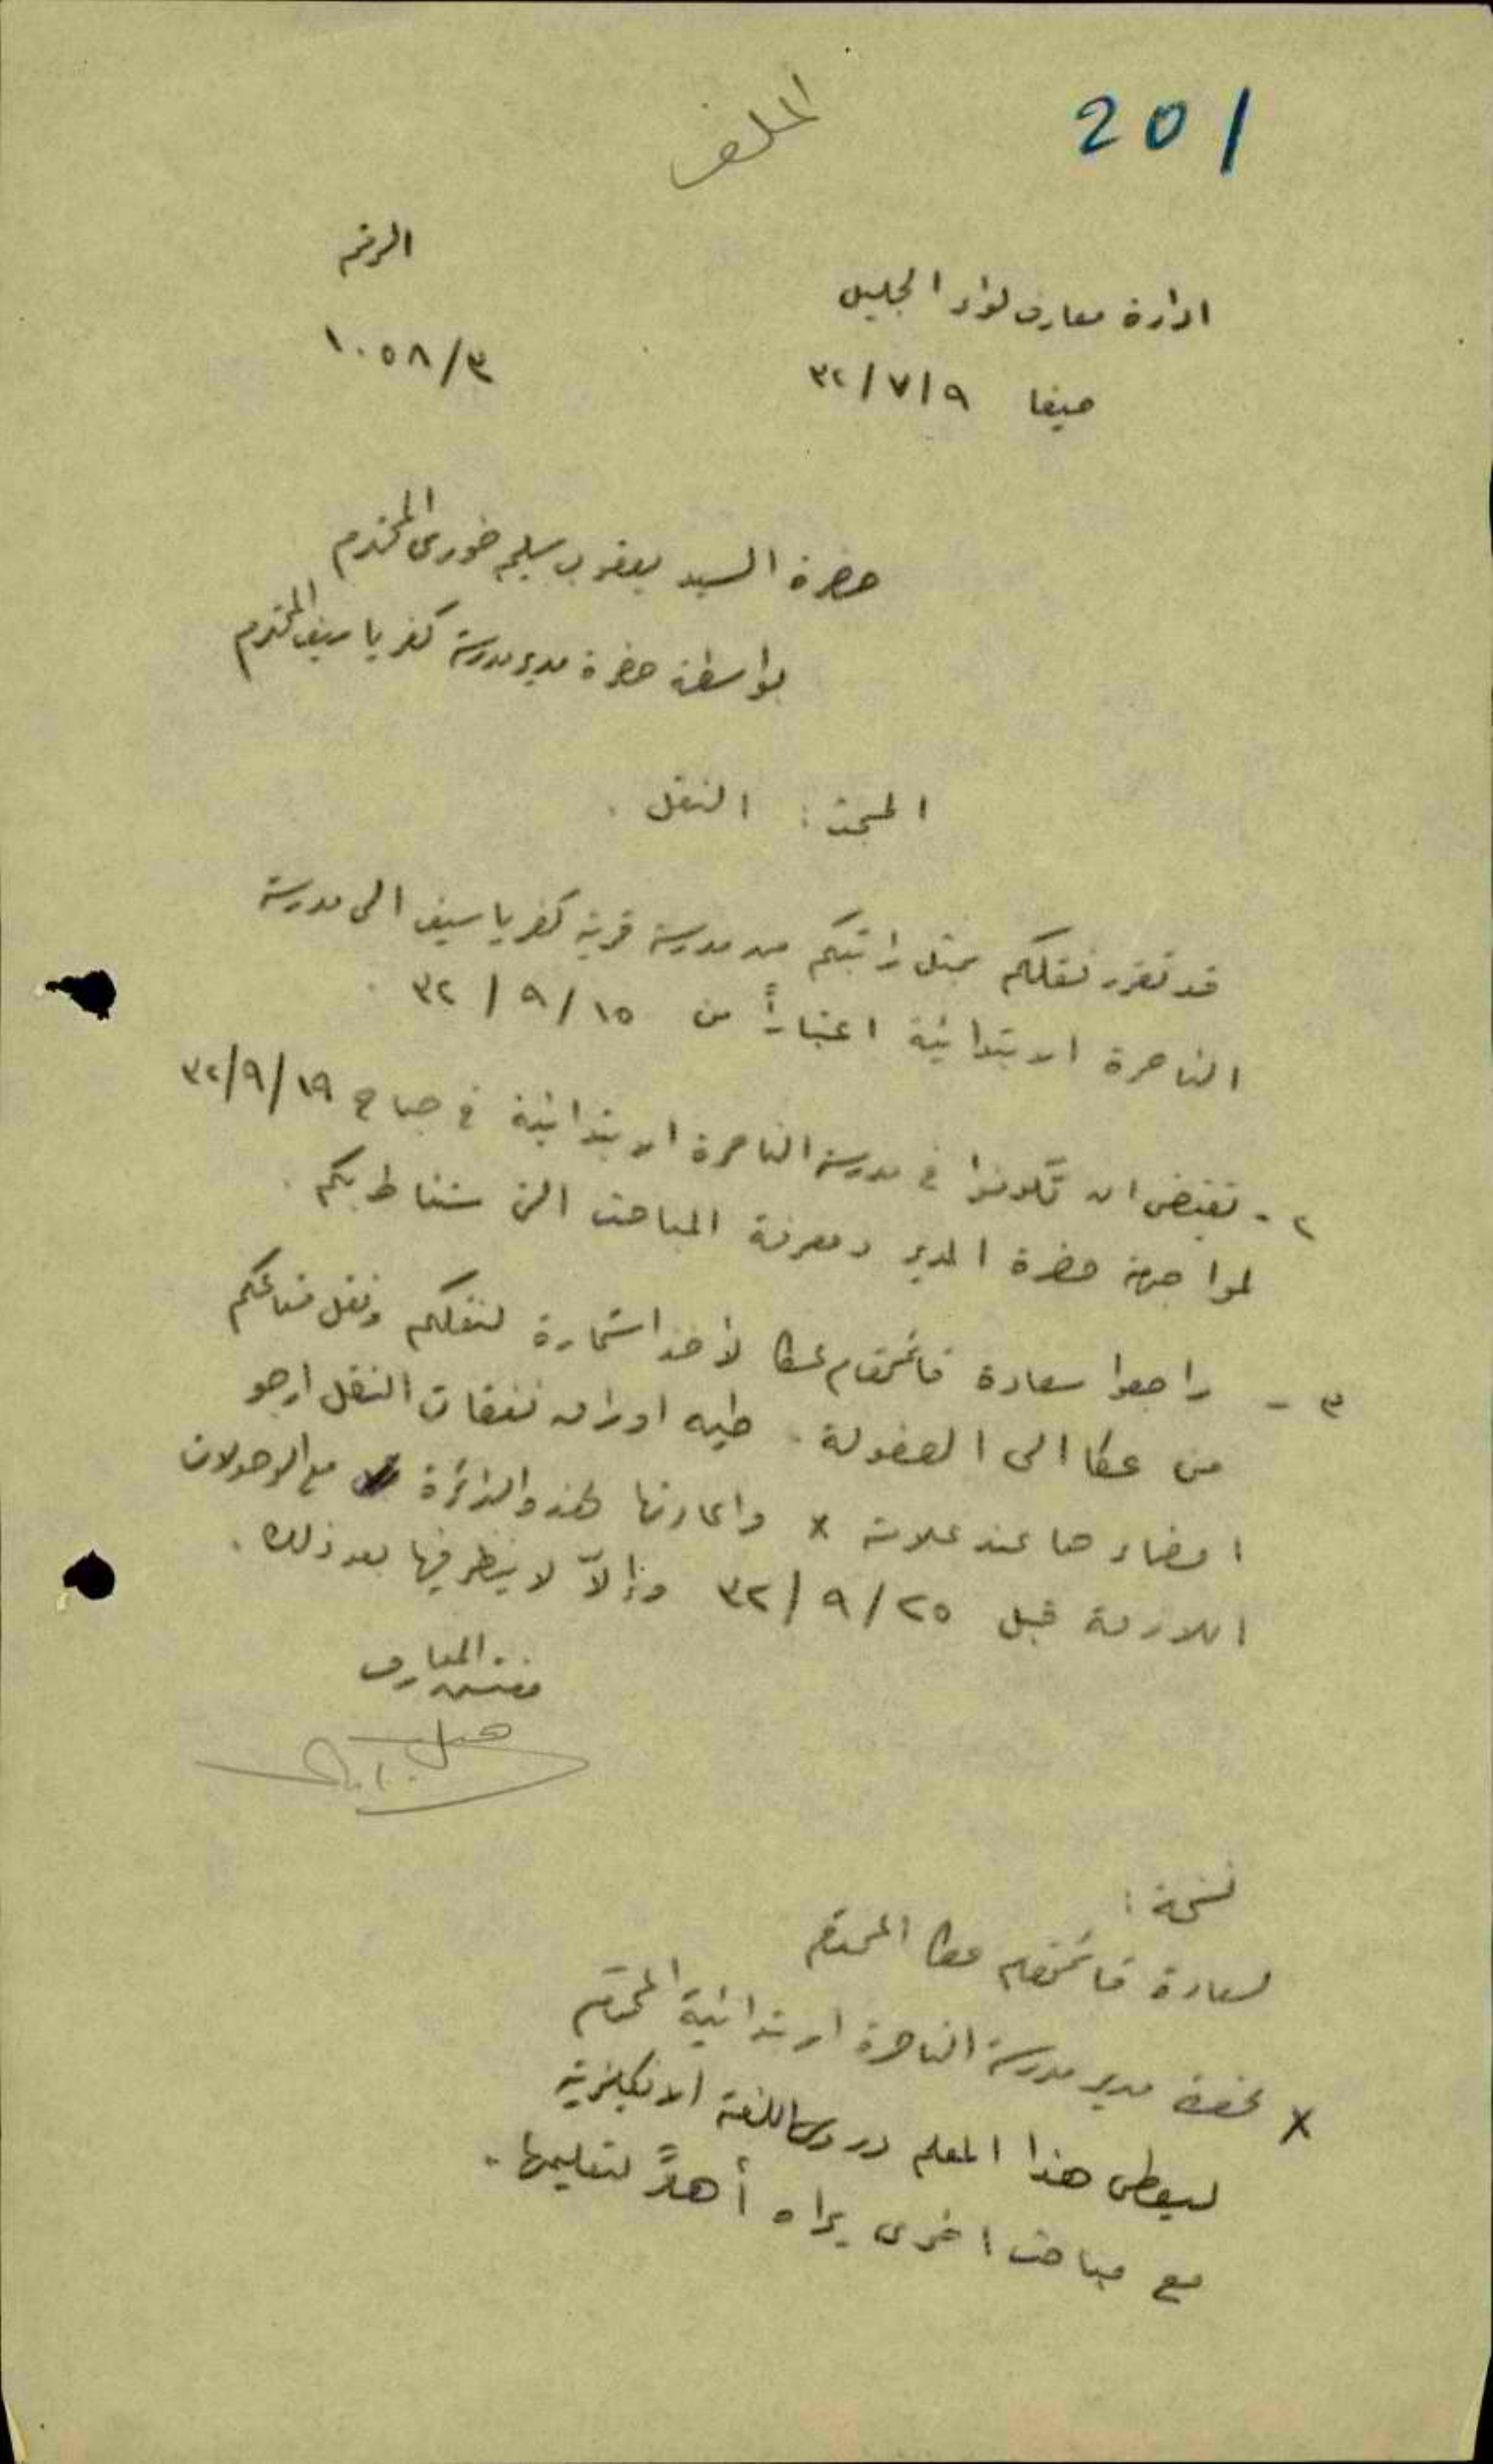 201
الملف
الرقم
ادارة معارف لواء الجليل
١٠٥٨/٣
حيفا ٩/٧/٣٢
حضرة السيد يعقوب سليم خوري المحترم
بواسطة حضرة مدير مدرسة كفرياسيف المحترم
المبحث : النقل .
قد تقرر نقلكم بمثل راتبكم من مدرسة قرية كفرياسيف الى مدرسة
الناصرة الابتدائية اعتباراً من ١٥/٩/٣٢ .
٢ - تقتضي ان تكونوا في مدرسة الناصرة الابتدائية في صباح ١٩/٩/٣٢
لمواجهة حضرة المدير ومعرفة المباحث التي ستناط بكم .
٣ - راجعوا سعادة قائمقام عكا لأخذ استمارة لنقلكم ونقل متاعكم
من عكا الى العفولة . طيه اوراق نفقات النقل ارجو
امضاءها عند علامة x واعادتها لهذه الدائرة مع الوصولات
اللازمة قبل ٢٥/٩/٣٢ وإلاّ لا ينظر فيها بعد ذلك .
مفتش المعارف
نسخة :
لسعادة قائمقام عكا المحترم
x لحضرة مدير مدرسة الناصرة الابتدائية المحترم
ليعطى هذا المعلم دروس اللغة الانكليزية
مع مباحث اخرى يراه أهلاً لتعليمها .